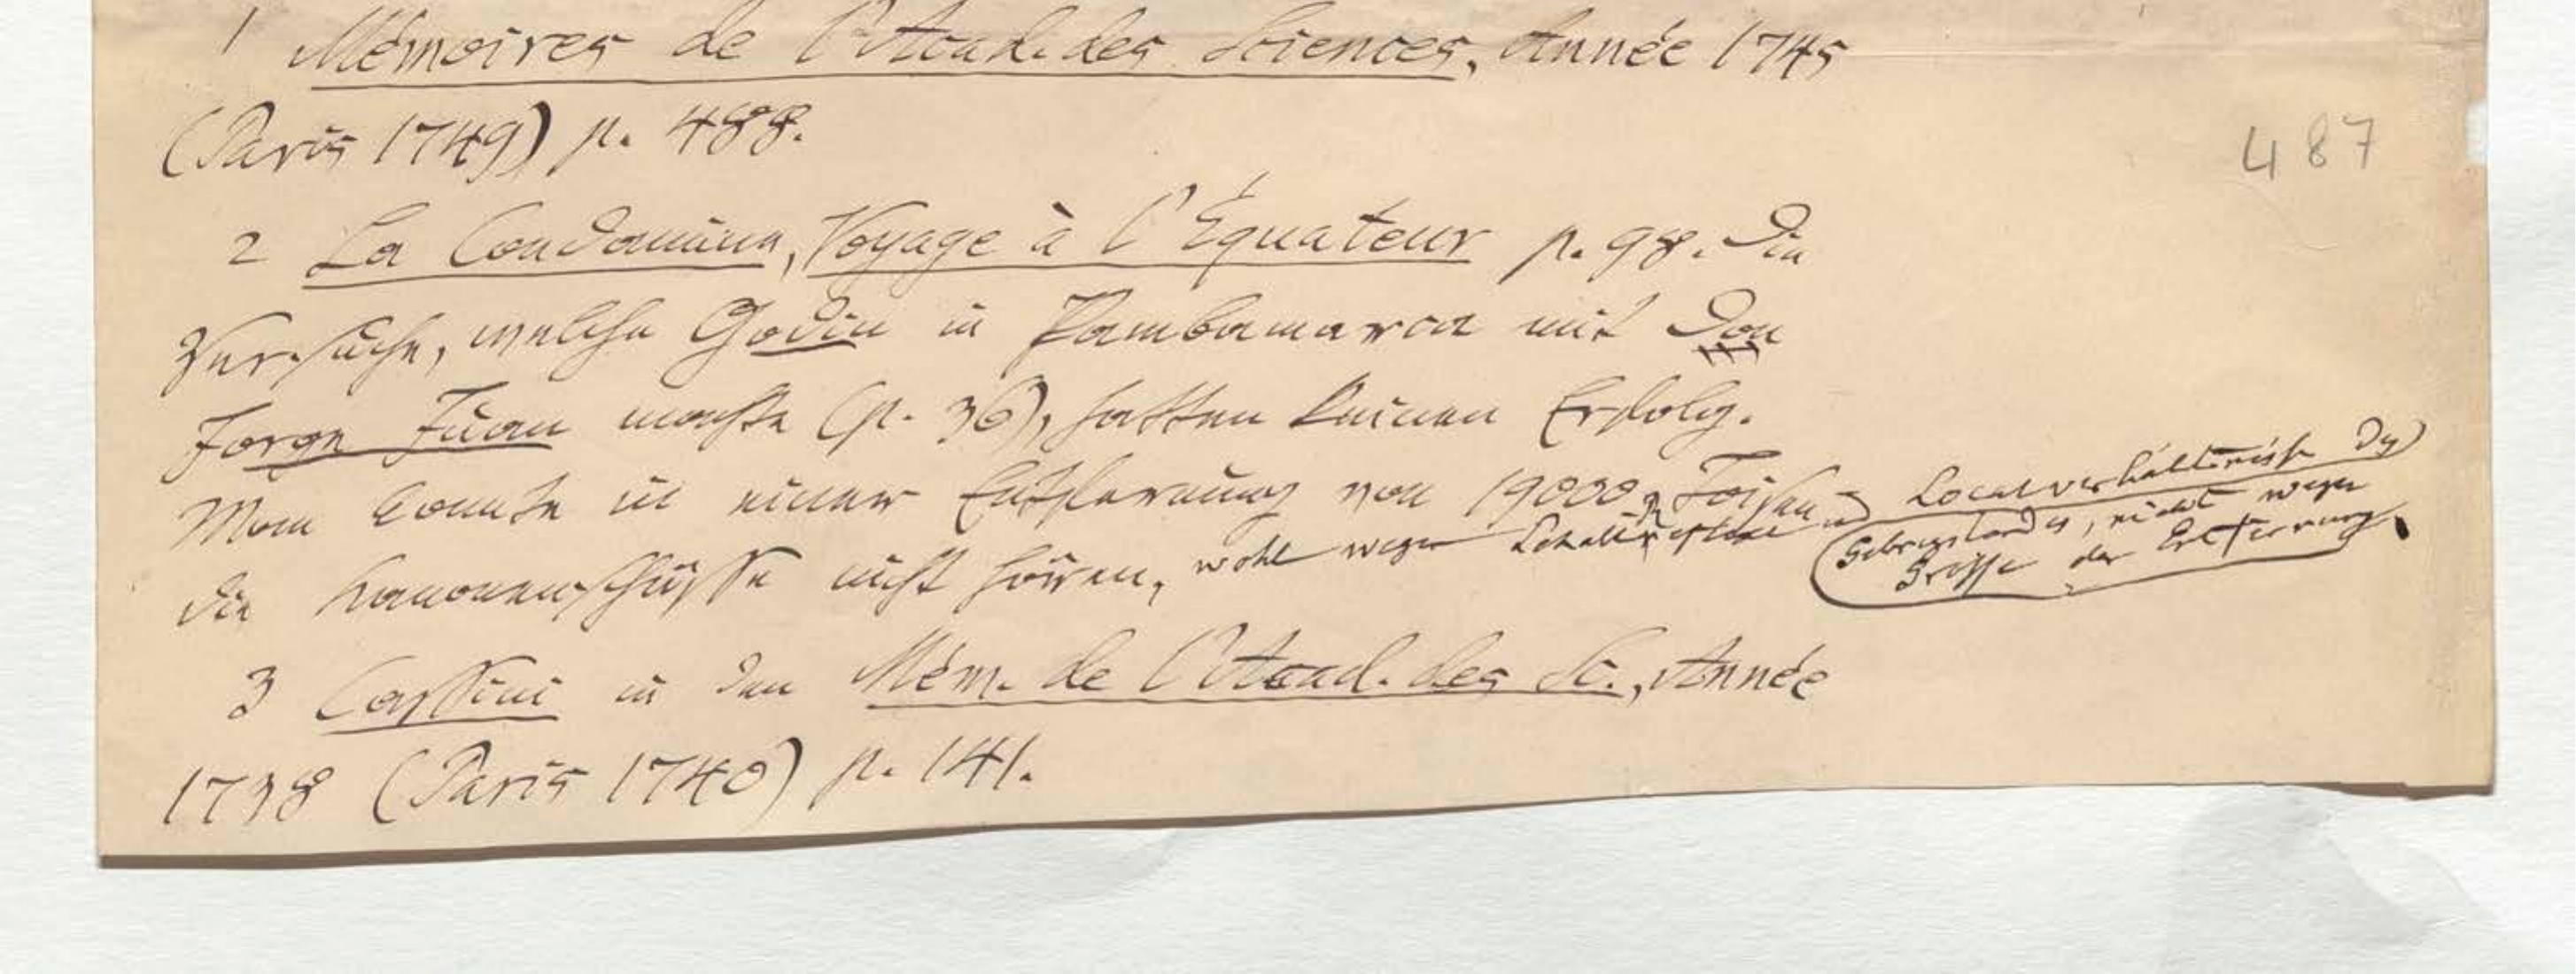 1 Mémoires de l'Acad. des Sciences, Année 1745
(Paris 1749) p. 488.
487
2 La Condamine, Voyage à l'Équateur p. 98. Die
Versuche, welche Godin in Pambamarca mit Don
Jorge Juan machte (p. 36), hatten keinen Erfolg.
Man konnte in einer Entfernung von 19000 Toisen
die Kanonenschüsse nicht hören, wohl wegen Localverhältnisse des
Gebirgslandes, nicht wegen
Grösse der Entfernung.
3 Cassini in den Mém. de l'Acad. des Sc., Année
1738 (Paris 1740) p. 141.